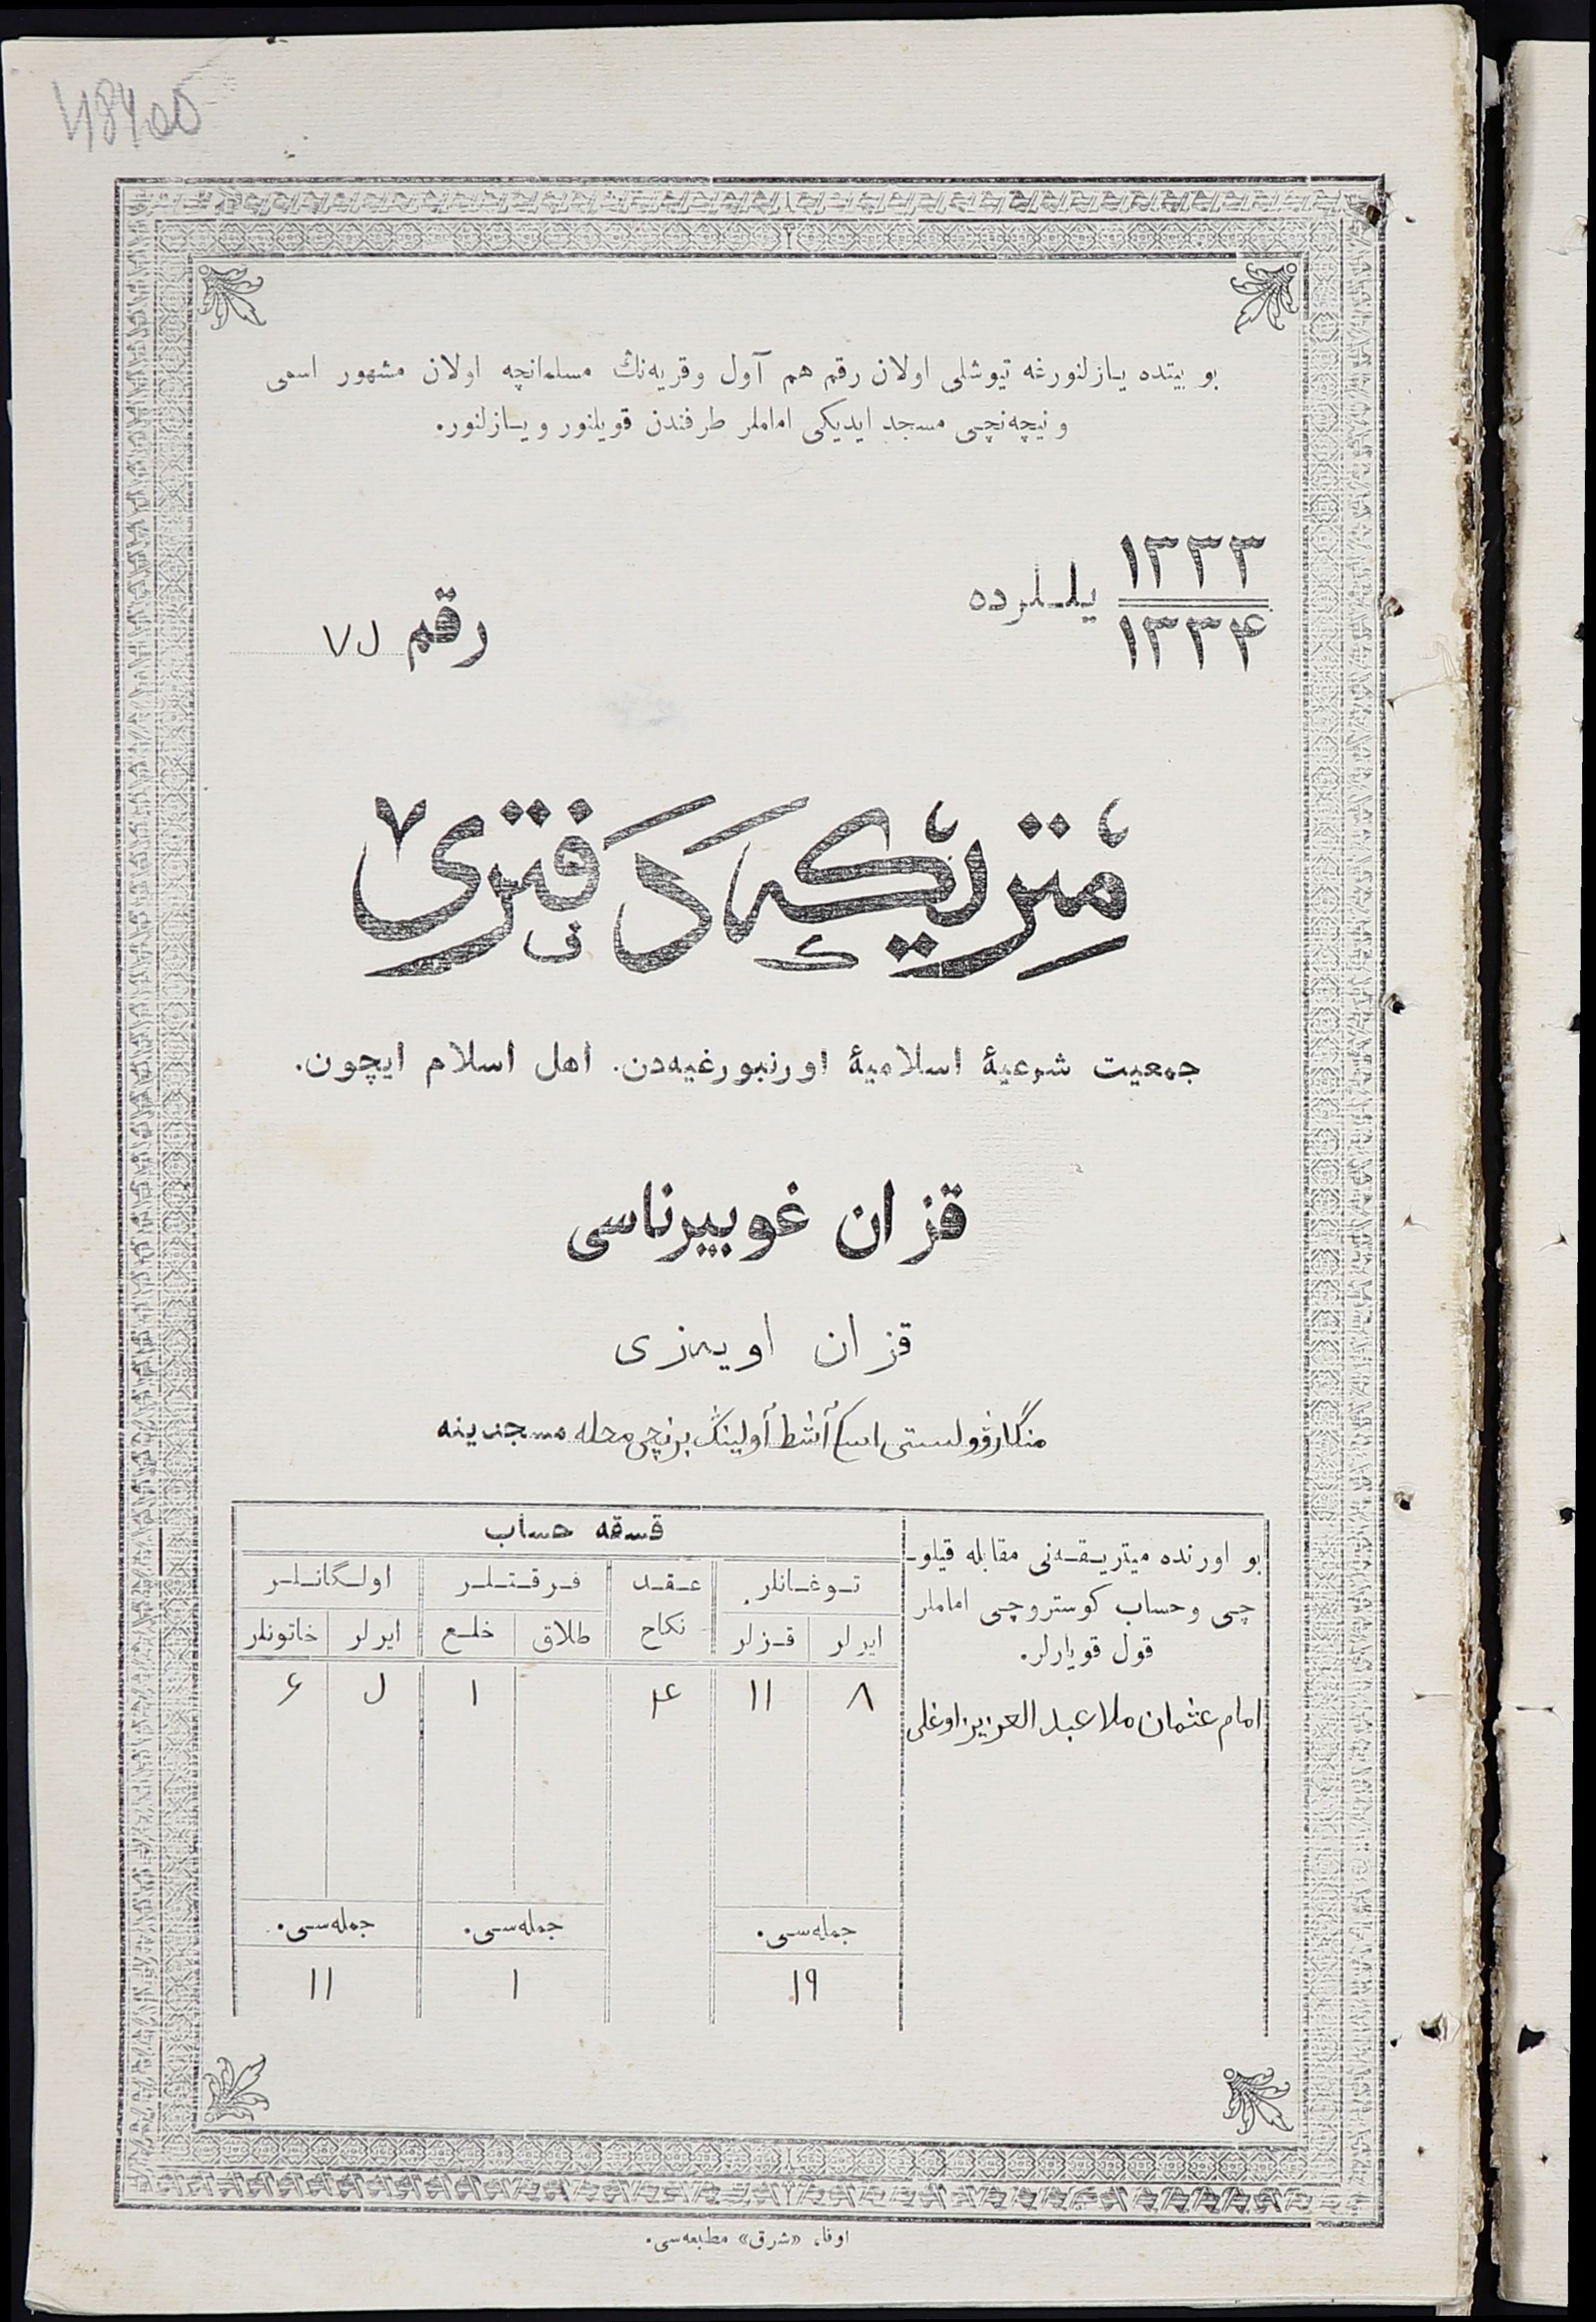 48400
بو بیتده یازلنورغه تیوشلی اولان رقم هم آول وقریه‌نڭ مسلمانچه اولان مشهور اسمی
و نیچه‌نچی مسجد ایدیکی اماملر طرفندن قویلنور و یازلنور.
۱۳۳۳
۱۳۳۴
یللرده
رقم ۷۵
متریکه دفتری
جمعیت شرعیهٔ اسلامیهٔ اورنبورغیه‌دن. اهل اسلام ایچون.
قزان غوبیرناسی
قزان اویه‌زی
منگار وولستی اسکی آشط أولینڭ برنچی محله مسجدینه
بو اورنده میتریقه‌نی مقابله قیلو-
چی وحساب کوستروچی اماملر
قول قویارلر.
امام عثمان ملا عبد العزیز اوغلی
قسقه حساب
توغانلر
عقد
فرقتلر
اولگانلر
ایرلر قزلر
نکاح
طلاق خلع
ایرلر خاتونلر
۸ ۱۱ ۴ ۱ ۵ ۶
جمله‌سی. جمله‌سی. جمله‌سی.
۱۹ ۱ ۱۱
اوفا، «شرق» مطبعه‌سی.